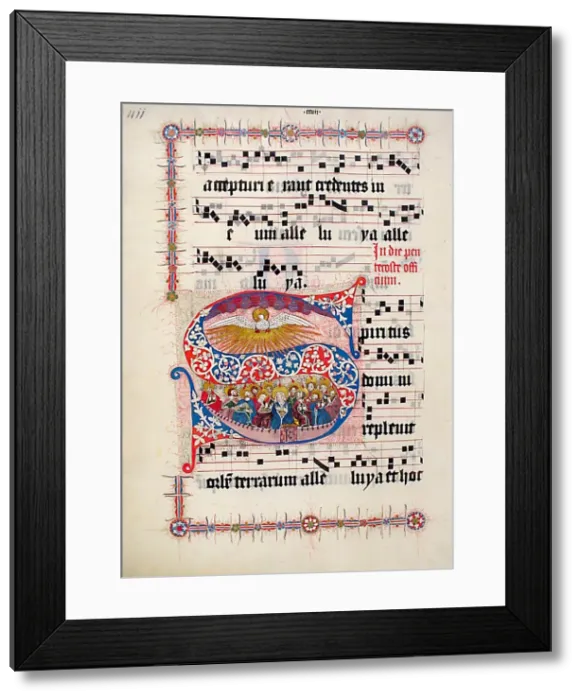 accepturi e rant credentes in
e um alle lu ya alle
lu ya.
In die pen
tecoste offi
cium.
Spiritus
domini
replevit
orbem terrarum alle luya et hoc